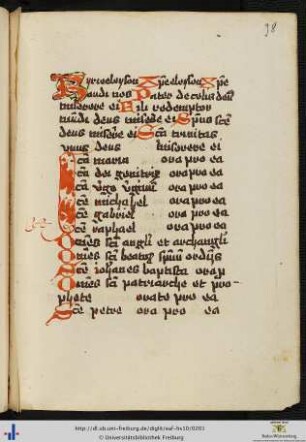 98
Kyrieleyson Xpeeleyson Xpe
audi nos Pater de celis deus
miserere ei Fili redemptor
mundi deus miserere ei Spus sce
deus miserere ei Sca trinitas
unus deus miserere ei
Sca maria ora pro ea
Sca dei genitrix ora pro ea
Sca virgo virginum ora pro ea
Sce michahel ora pro ea
Sce gabriel ora pro ea
Sce raphael ora pro ea
Omes sci angeli et archangeli
Omes sci beatorum spirituum ordines
Sce johanes baptista ora p
Omes sci patriarche et pro
phete orate pro ea
Sce petre ora pro ea
http://dl.ub.uni-freiburg.de/diglit/
© Universitätsbibliothek Freiburg
Baden-Württemberg